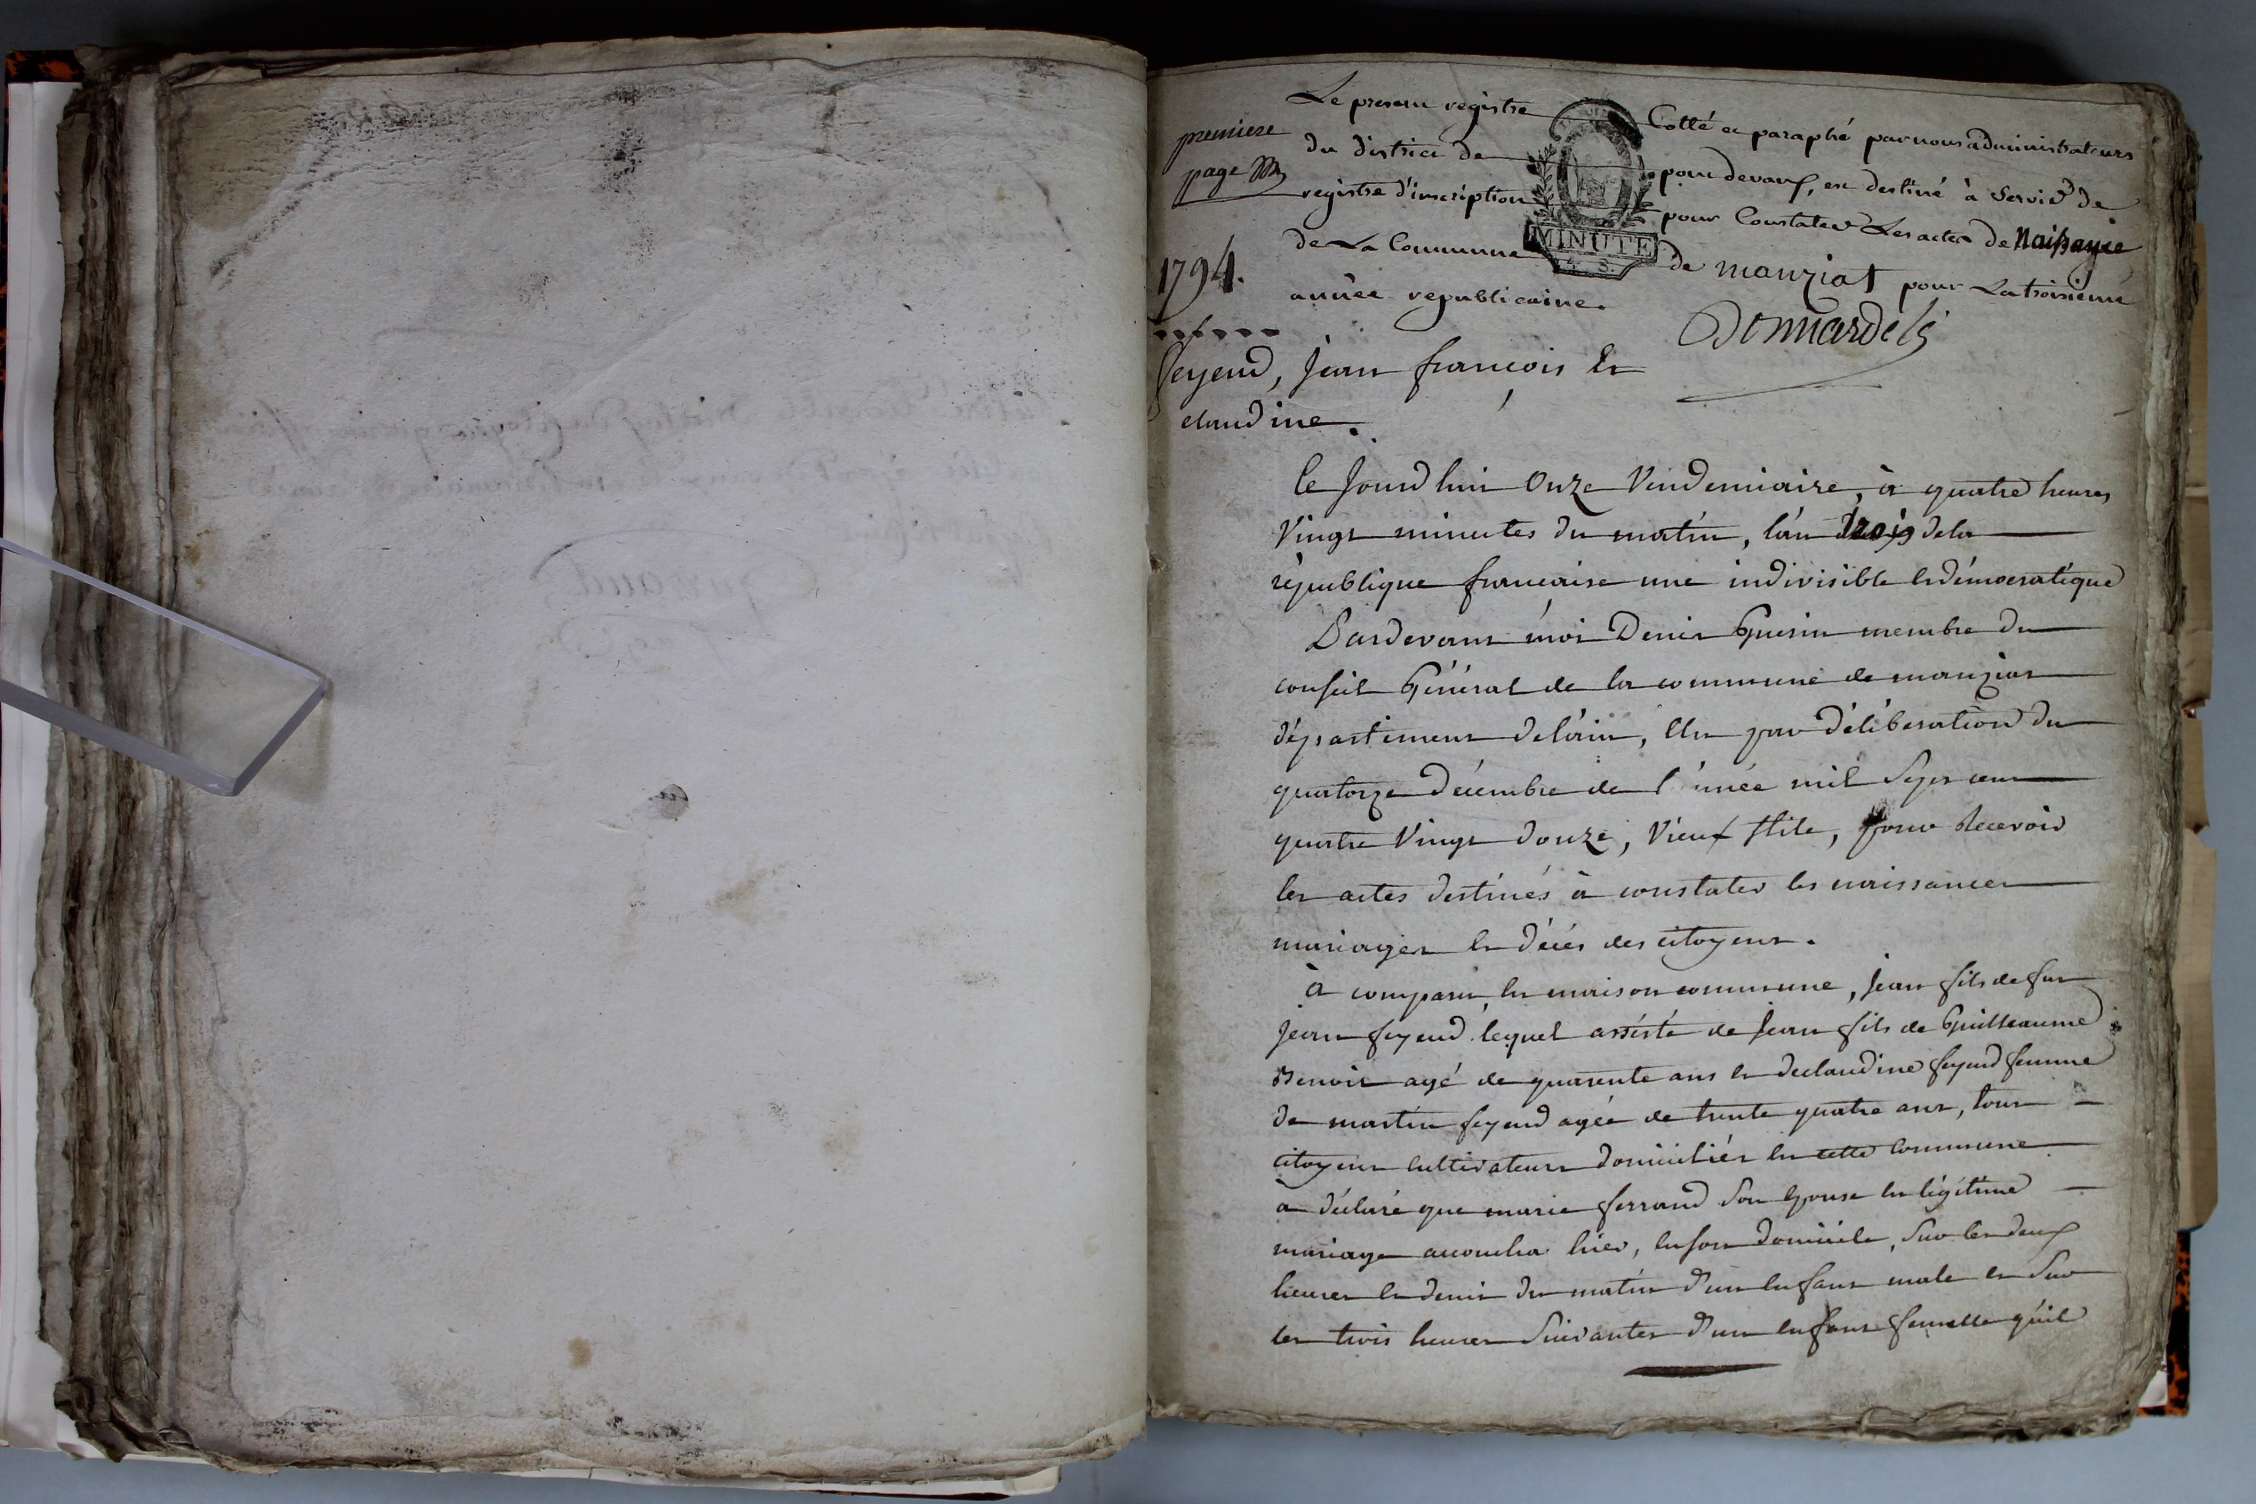 Le present registre Cotté et paraphé par nous administrateurs
premiere
page
du district de pour devaux, est destiné à servir de
registre d'inscription pour Constater Les actes de Naissance
MINUTE
de La Commune de manziat pour La troisieme
1794.
année republicaine.
feyeud, jean françois et
claudine.
Ce Jourdhui Onze Vendemiaire, à quatre heures
Vingt minutes du matin, l'an trois de la
république françaisse une indivisible et démocratique
Pardevant moi Denis Guerin membre du
conseil Général de la commune de manziat
département de l'ain, Elu par délibération du
quatorze décembre de l'année mil sept cent
quatre Vingt douze, Vieux stile, pour Recevoir
les actes destinés à constater les naissances
mariages et décés des citoyens.
à comparu en maison commune, jean fils de fut
Jean feyeud lequel assisté de Jean fils de Guilleaume
Benoit agé de quarente ans et de claudine feyeud femme
de martin feyeud agée de trente quatre ans, tous
citoyens cultivateurs domiciliés en cette commune
à déclaré que marie ferrand son Epouse en légitime
mariage accoucha hier, en son domicile, sur les deux
heures et demie du matin d'un enfant male et sur
les trois heures suivantes d'un enfant femelle qu'il